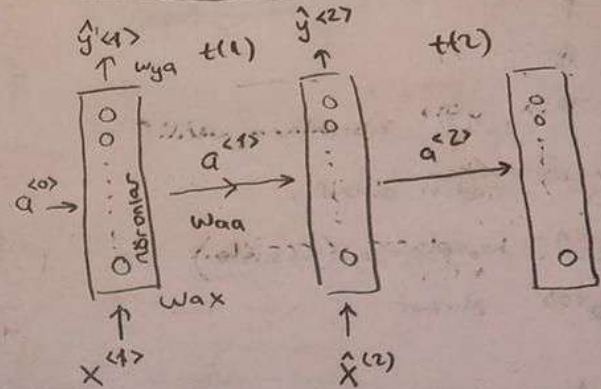 ŷ<1>
wya
t(1)
ŷ<2>
t(2)
a<0>
nöronlar
a<1>
waa
a<2>
wax
x<1>
x̂<2>